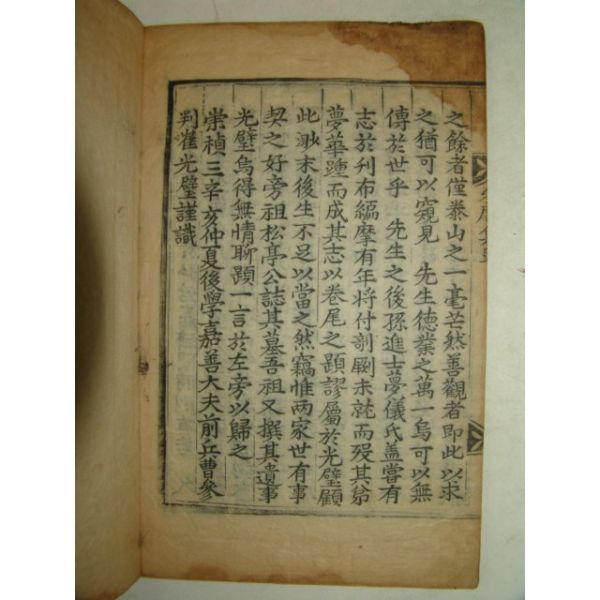 之餘者僅泰山之一毫芒然善觀者即此以求
之猶可以窺見 先生德業之萬一烏可以無
傳於世乎 先生之後孫進士夢儀氏盖嘗有
志於刋布編摩有年將付剞劂未就而歿其弟
夢華踵而成其志以卷尾之題謬屬於光璧顧
此渺末後生不足以當之然竊惟兩家世有事
契之好旁祖松亭公誌其墓吾祖又撰其遺事
光璧烏得無情聊題一言於左旁以歸之
崇禎三辛亥仲夏後學嘉善大夫前兵曹參
判崔光璧謹識